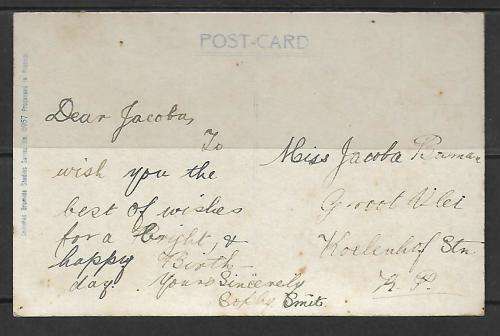 POST-CARD
Dear Jacoba,
To
wish you the
best of wishes
for a bright, &
happy Birth-
day.
Yours Sincerely
Smit.
Miss Jacoba
Groot Vlei
Koelenhof Stn.